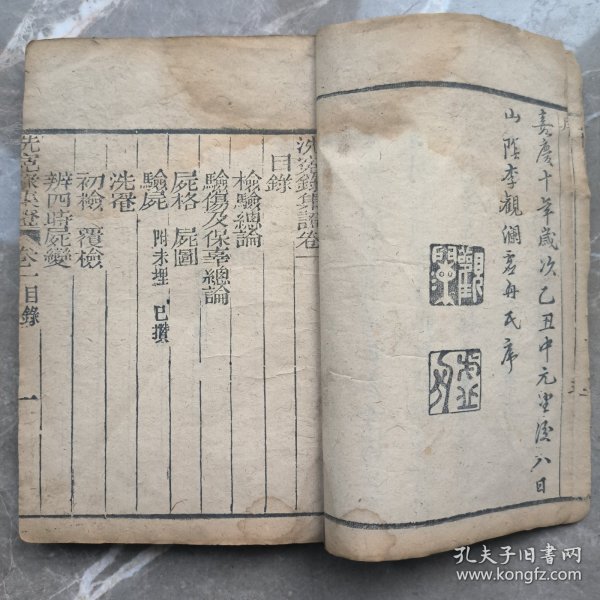 嘉慶十年歲次乙丑中元望後八日
山陰李觀瀾虛舟氏序
洗冤錄集證卷一
目錄
檢驗總論
驗傷及保辜總論
屍格 屍圖
驗屍 附未埋 已攢
洗罨
初檢 覆檢
辨四時屍變
洗冤錄集證 卷一目錄 一
孔夫子旧書网
www.kongfz.com